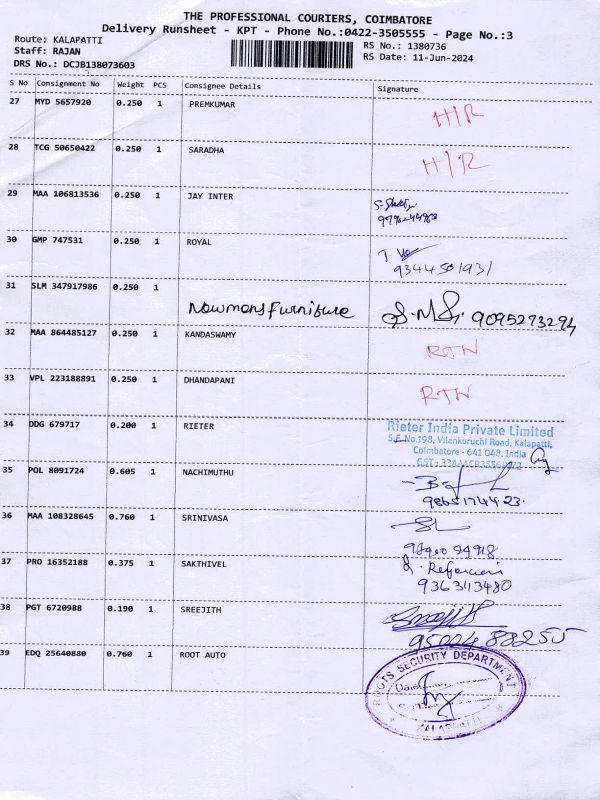 THE PROFESSIONAL COURIERS, COIMBATORE
Delivery Runsheet - KPT - Phone No.:0422-3505555 - Page No.:3
Route: KALAPATTI
Staff: RAJAN
DRS No.: DCJB138073603
RS No.: 1380736
RS Date: 11-Jun-2024
S No Consignment No Weight PCS Consignee Details Signature
27 MYD 5657920 0.250 1 PREMKUMAR H/R
28 TCG 50650422 0.250 1 SARADHA H/R
29 MAA 106813536 0.250 1 JAY INTER
30 GMP 747531 0.250 1 ROYAL
9344501931
31 SLM 347917986 0.250 1
Nowmans furniture S.M.S. 9095273294
32 MAA 864485127 0.250 1 KANDASWAMY RTN
33 VPL 223188891 0.250 1 DHANDAPANI RTN
34 DDG 679717 0.200 1 RIETER
Rieter India Private Limited
S.F. No.198, Vilankuruchi Road, Kalapatti,
Coimbatore - 641 048, India
35 POL 8091724 0.605 1 NACHIMUTHU
9865174423
36 MAA 108328645 0.760 1 SRINIVASA
37 PRO 16352188 0.375 1 SAKTHIVEL
9363113480
38 PGT 6720988 0.190 1 SREEJITH
9500488255
39 EDQ 25640880 0.760 1 ROOT AUTO
ROOTS SECURITY DEPARTMENT
KALAPATTI